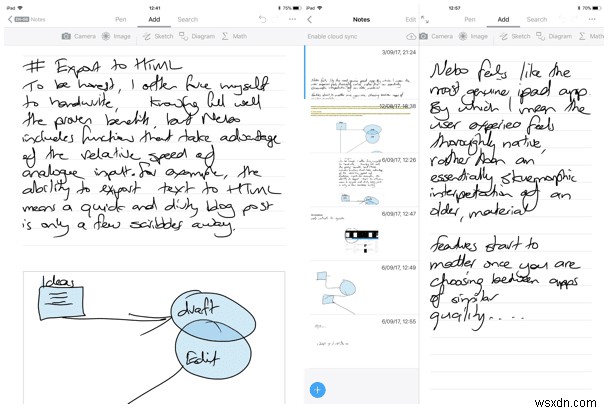 iPad
12:41
81%
Notes
Pen
Add
Read
Camera
Image
Sketch
Diagram
Math
# Export to HTML
To be honest, I often force myself
to handwrite, knowing full well
the proven benefits, but Nebo
includes functions that take advantage
of the relative speed of
analogue input. For example, the
ability to export text to HTML
means a quick and dirty blog post
is only a few scribbles away.
Ideas
draft
Edit
iPad
12:57
75%
Notes
Edit
Enable cloud sync
3/09/17, 21:24
12/08/17, 18:38
6/09/17, 12:26
6/09/17, 12:47
6/09/17, 12:49
6/09/17, 12:55
Pen
Add
Read
Camera
Image
Sketch
Diagram
Math
Nebo feels like the
most genuine ipad app
By which I mean the
user feels
thoroughly native,
rather than an
essentially skeuomorphic
interpretation of an
older, material
features start to
matter once you are
choosing between apps
of similar
quality.....
wsxdn.com